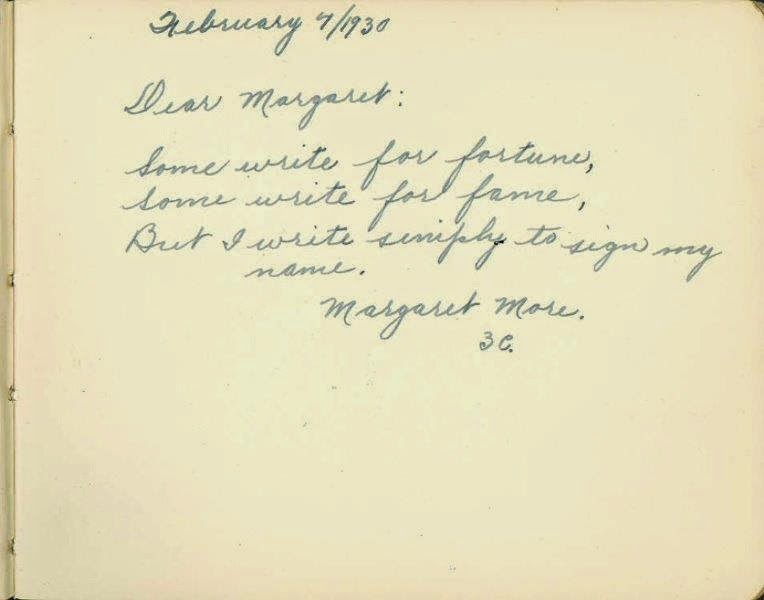 February 7/1930
Dear Margaret:
Some write for fortune,
some write for fame,
But I write simply to sign my
name.
Margaret More.
3C.